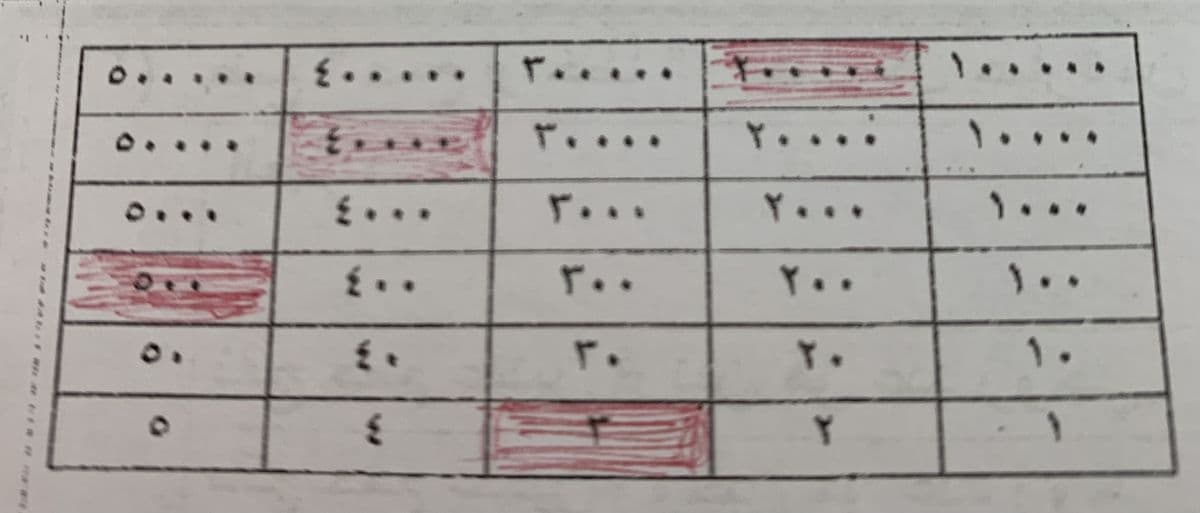 ١٠٠٠٠٠ ٢٠٠٠٠٠ ٣٠٠٠٠٠ ٤٠٠٠٠٠ ٥٠٠٠٠٠
١٠٠٠٠ ٢٠٠٠٠ ٣٠٠٠٠ ٤٠٠٠٠ ٥٠٠٠٠
١٠٠٠ ٢٠٠٠ ٣٠٠٠ ٤٠٠٠ ٥٠٠٠
١٠٠ ٢٠٠ ٣٠٠ ٤٠٠ ٥٠٠
١٠ ٢٠ ٣٠ ٤٠ ٥٠
١ ٢ ٣ ٤ ٥